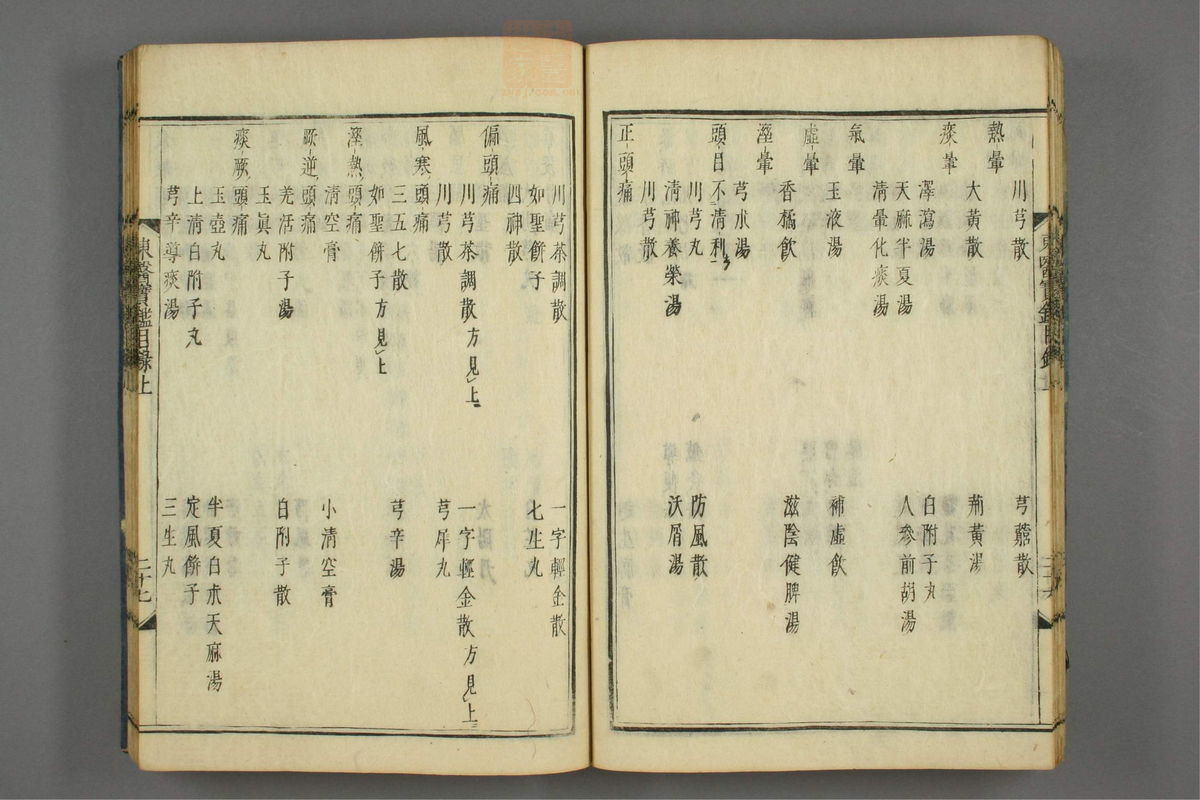 川芎散　芎藭散
熱暈
大黃散　荊黃湯
痰暈
澤瀉湯　白附子丸
天麻半夏湯　人參前胡湯
清暈化痰湯
氣暈
玉液湯　補虛飮
虛暈
香橘飮　滋陰健脾湯
濕暈
芎朮湯
頭目不清利
川芎丸　防風散
清神養榮湯　沃屑湯
川芎散
正頭痛
東醫寶鑑目錄上　二十六
川芎茶調散　一字輕金散
如聖餠子　七生丸
四神散
偏頭痛
川芎茶調散方見上　一字輕金散方見上
川芎散　芎犀丸
風寒頭痛
三五七散　芎辛湯
如聖餠子方見上
濕熱頭痛
清空膏　小清空膏
厥逆頭痛
羌活附子湯　白附子散
玉眞丸
痰厥頭痛
玉壺丸　半夏白朮天麻湯
上清白附子丸　定風餠子
芎辛導痰湯　三生丸
東醫寶鑑目錄上　二十七